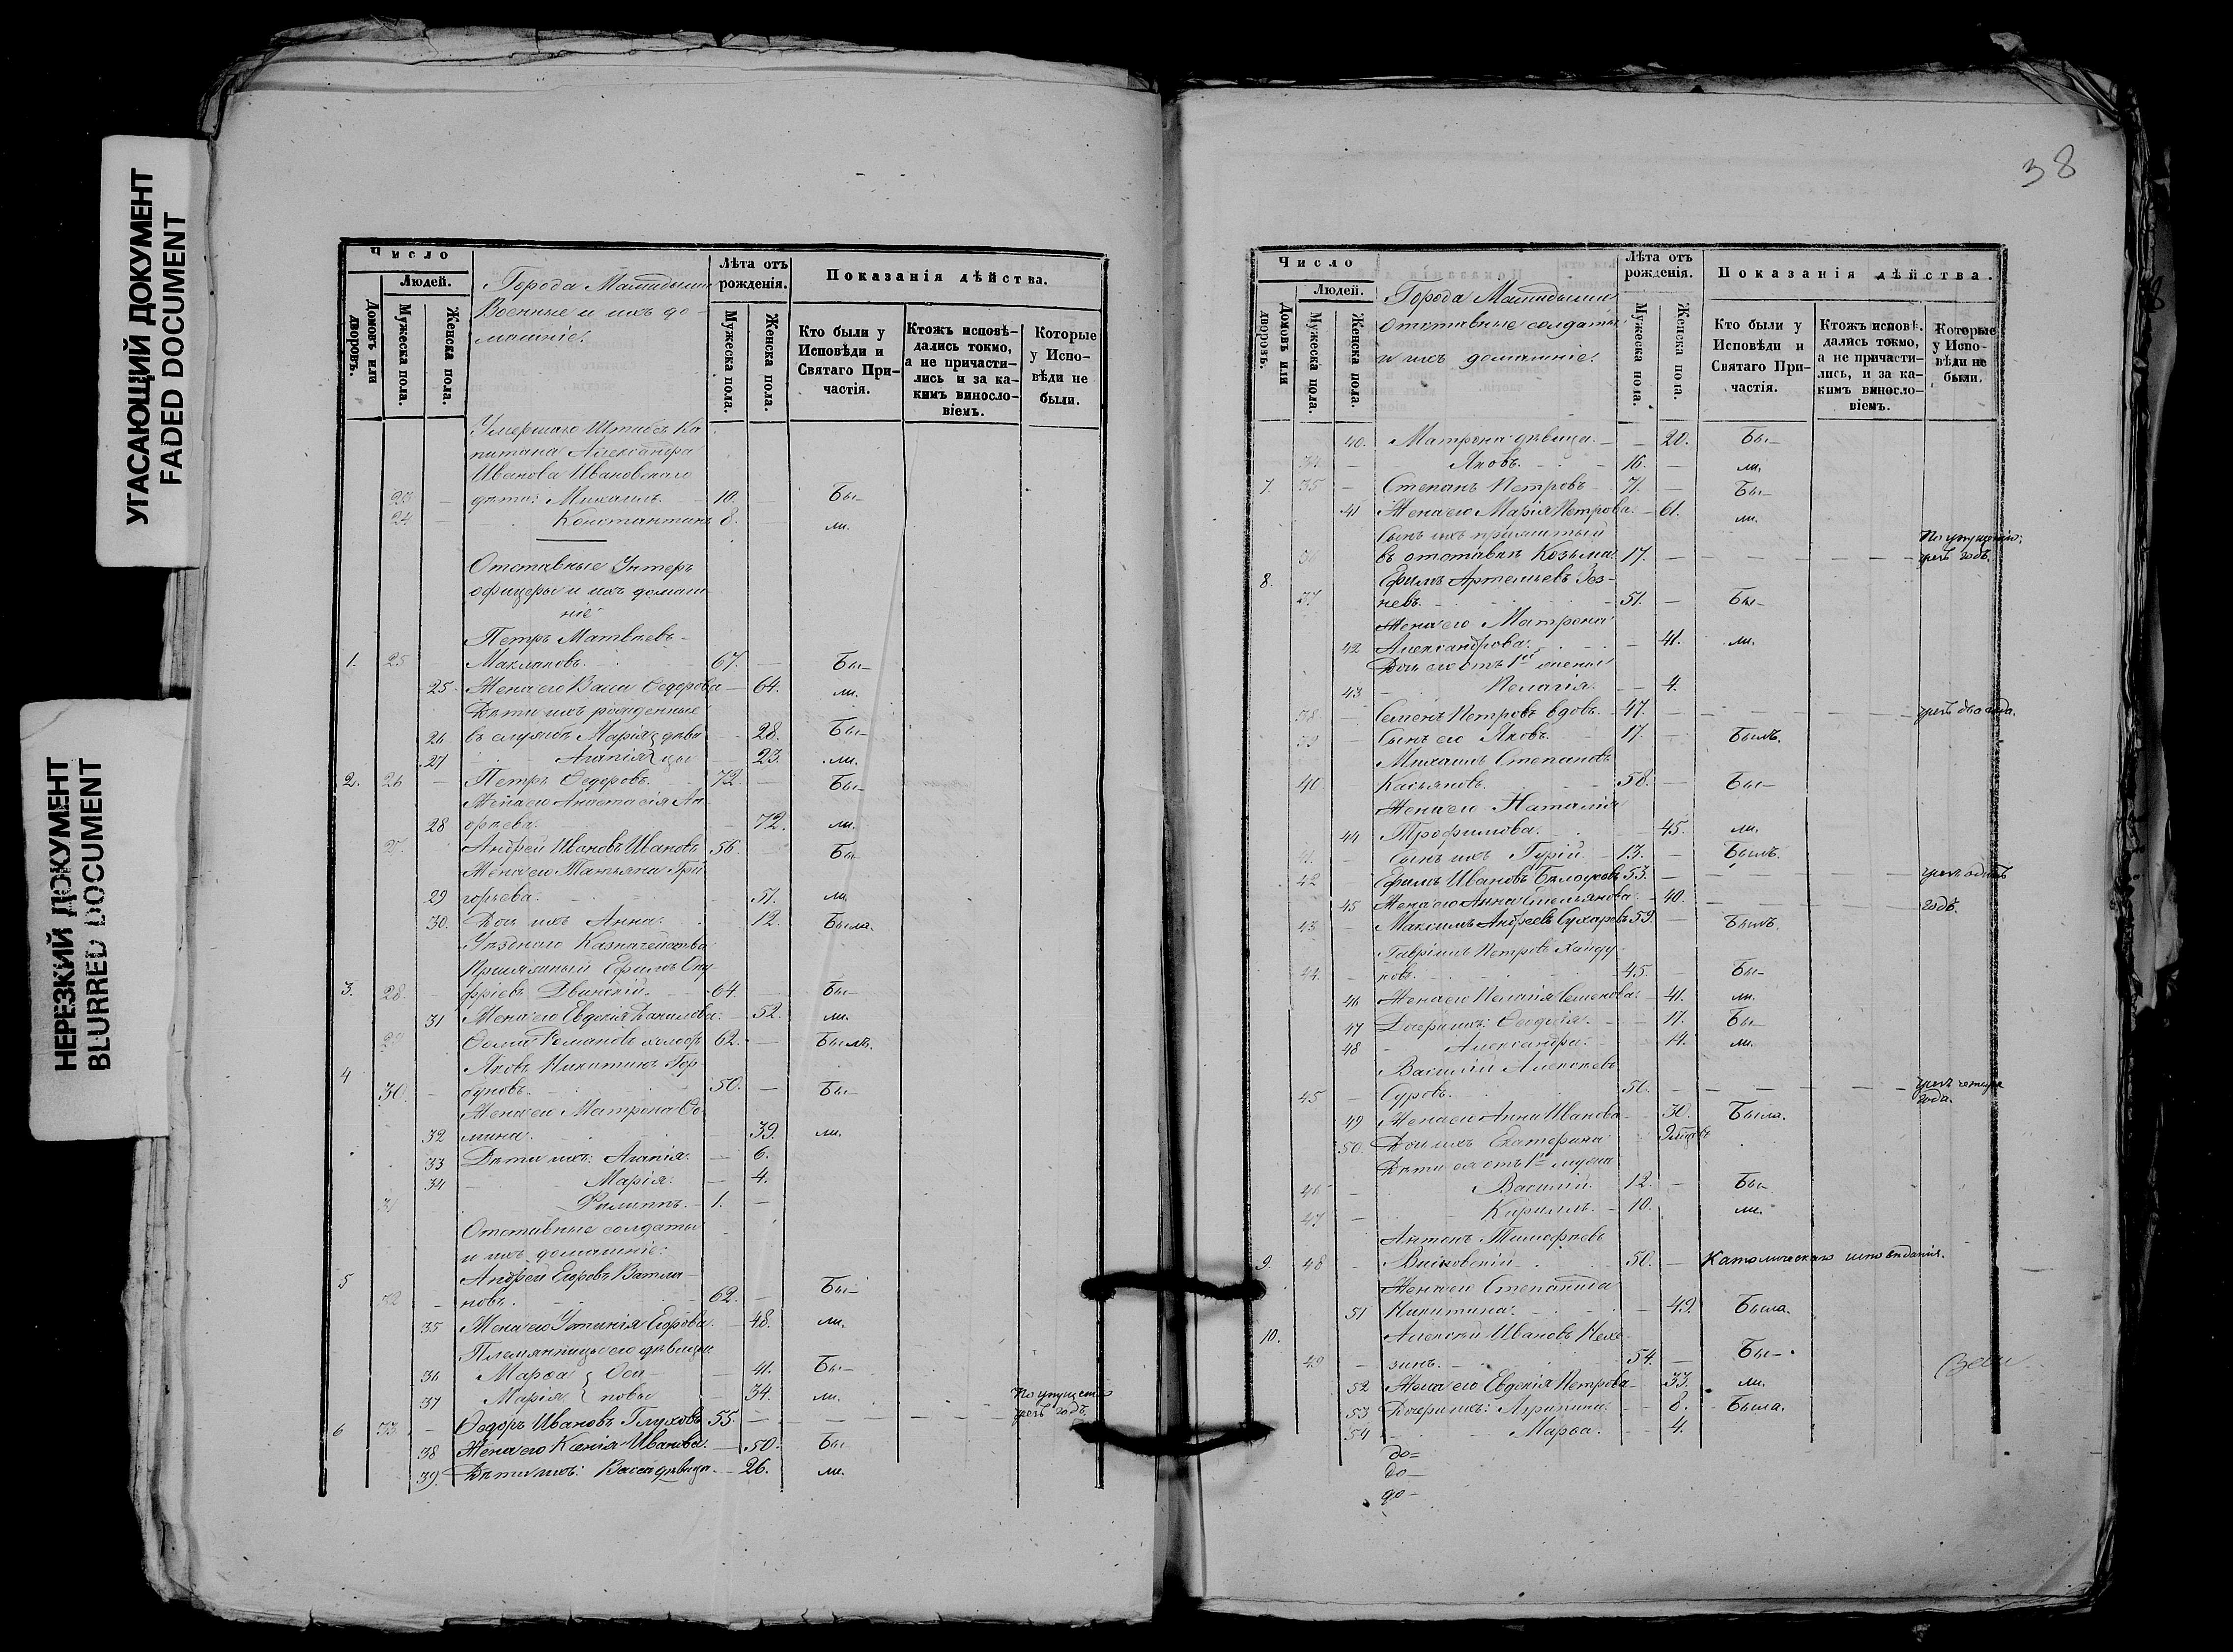 УГАСАЮЩИЙ ДОКУМЕНТ
FADED DOCUMENT
НЕРЕЗКИЙ ДОКУМЕНТ
BLURRED DOCUMENT
Число
Людей.
Домовъ или дворовъ.
Мужеска пола.
Женска пола.
Города
Военные и ихъ до-
машніе.
Лѣта отъ рожденія.
Мужеска пола.
Женска пола.
Показанія дѣйства.
Кто были у Исповѣди и Святаго При-частія.
Ктожъ исповѣ-дались токмо, а не причасти-лись и за ка-кимъ винословіемъ.
Которые у Испо-вѣди не были.
Умершаго Штабсъ Ка
питана Александра
Иванова Ивановскаго
23 — дѣти: Михаилъ. 10. — Бы-
24 — Константинъ 8. ли.
Отставные Унтеръ
офицеры и ихъ домаш
ніе
Петръ Матвѣевъ
1. 25 Маклаковъ. 67. — Бы-
25. Жена его Васса Ѳедорова — 64. ли.
Дѣти ихъ рожденные
26 въ службѣ Марія дѣви 28. Бы-
27 Агапія цы 23. ли.
2. 26 — Петръ Ѳедоровъ. 72. Бы-
Жена его Анастасія
28 72. ли.
27. Андрей Ивановъ Ивановъ 56. Бы-
Жена его Татьяна Гри
29 горьева. 51. ли.
30. Дочь ихъ Анна. 12. Была.
Уѣзднаго Казначейства
Присяжный Ефимъ Ону-
3. 28. фріевъ Двинскій. 64. Бы-
31 Жена его Евдокія Данилова. — 52. ли.
29 Романовъ 62. — Былъ.
4 Яковъ Никитинъ Гор-
30. — 50. — Бы-
Жена его Матрона Ѳо
32 мина. 39. ли.
33 Дѣти ихъ: Агапія. — 6.
34 Марія. — 4.
31 Филиппъ. 1. —
Отставные солдаты
и ихъ домашніе:
5 Андрей Егоровъ
32 — новъ. 62. — Бы-
35 Жена его Устинія Егорова. — 48. ли.
Племянницы его дѣвицы
36 Марѳа Оси 41. Бы-
37 Марія повы 34. ли.
По упущенію
чрезъ годъ.
6 33. — Ѳедоръ Ивановъ Глуховъ 55. —
38 Жена его Ксенія Иванова. — 50. Бы-
39. Дѣти ихъ: Васса дѣвица. — 26. ли.
38
Число
Людей.
Домовъ или дворовъ.
Мужеска пола.
Женска пола.
Города
отставные солдаты
и ихъ домашніе.
Лѣта отъ рожденія.
Мужеска пола.
Женска пола.
Показанія дѣйства.
Кто были у Исповѣди и Святаго При-частія.
Ктожъ исповѣ.дались токмо, а не причасти-лись, и за ка-кимъ винословіемъ.
Которые у Испо-вѣди не были.
40. Матрона дѣвица. — 20. Бы-
34 — Яковъ. 16. — ли.
7. 35 — Степанъ Петровъ 71. — Бы-
41 Жена его Марія Петрова. — 61. ли.
Сынъ ихъ прижитый
въ отставкѣ Козьма 17. — По упущенію чрезъ годъ.
8. Ефимъ Артемьевъ
37 невъ. 51. — Бы-
Жена его Матрона
42 Александрова. — 41. ли.
Дочь его отъ 1й жены
43 — Пелагія. — 4.
38 — Семенъ Петровъ вдовъ. 47. — чрезъ два года.
39 — Сынъ его Яковъ. 17. — Былъ.
Михаилъ Степановъ
40 Касьяновъ. 58. — Бы-
Жена его Наталія
44 Трофимова. — 45. ли.
41. — Сынъ ихъ Гурій. 13. — Былъ.
42 — Ефимъ Ивановъ Бѣлоусовъ 53. — чрезъ одинъ
45 Жена его Анна Емельянова. 40. — годъ.
43 — Максимъ Андреевъ Сухаревъ 59. — Былъ.
Гавріилъ Петровъ Хайду-
44. — ковъ. 45. — Бы-
46 Жена его Пелагія Семенова. — 41. ли.
47 Дочери ихъ: Евдокія. — 17. Бы-
48 — Александра. 14. ли.
Василій Алексѣевъ
45 — Суровъ. 50. — чрезъ четыре года.
49 Жена его Анна Иванова — 30. Была.
50. Дочь ихъ Екатерина
Дѣти ея отъ 1го мужа
46 — Василій. 12. — Бы-
47 — Кириллъ. 10. ли.
Антонъ Тимофѣевъ
9. 48 — 50. — Католическаго исповѣданія.
Жена его Степанида
51 Никитина. — 49. Была.
10. Алексѣй Ивановъ
49 — зинъ. 54. — Бы-
52 Жена его Евдокія Петрова — 33. ли.
53 Дочери ихъ: Агрипина. — 8. Была.
54 — Марѳа. — 4.
до-
до-
до-